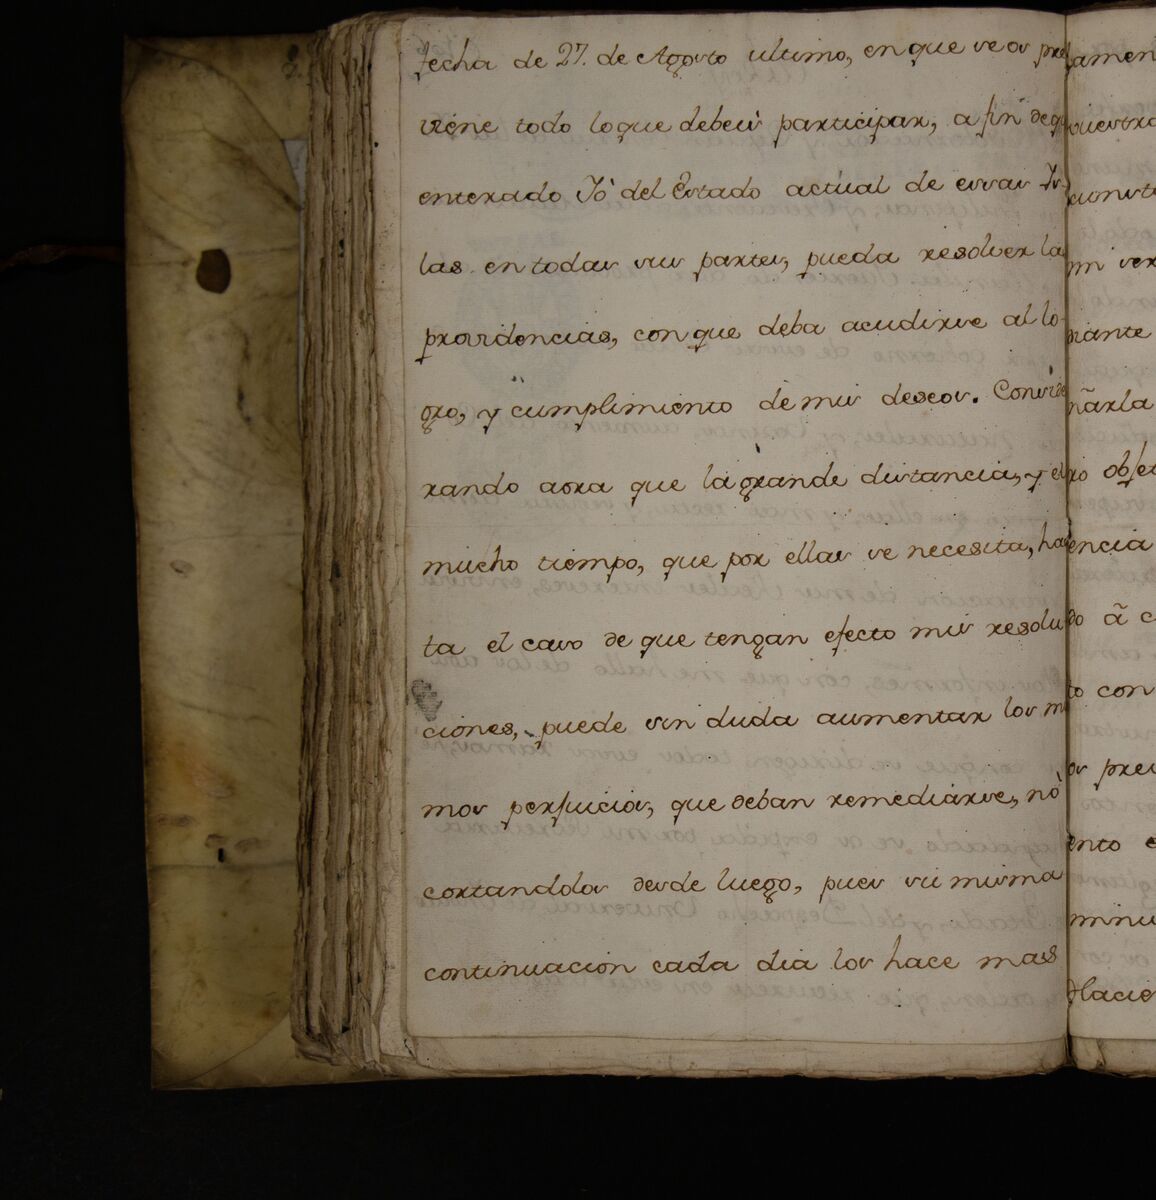 fecha de 27. de Agosto ultimo, en que se os pre
viene todo lo que debeis participar, a fin de q.
enterado Yò del Estado actùal de essas Is-
las en todas sus partes, pueda resolver la
providencias, con que deba acudirse al lo-
gro, y cumplimiento de mis deseos. Conside
rando aora que la grande distancia, y el
mucho tiempo, que por ellas se necesita, has
ta el caso de que tengan efecto mis resolu
ciones, puede sin duda aumentar los m
mos perjuicios, que deban remediarse, nò
cortandolos desde luego, pues su misma
continuacion cada dia los hace mas
amen
vuestra
mi ver
riante
ñarla
ro obje
encia
do â c
to con
os pre
ento e
minu
Hacie